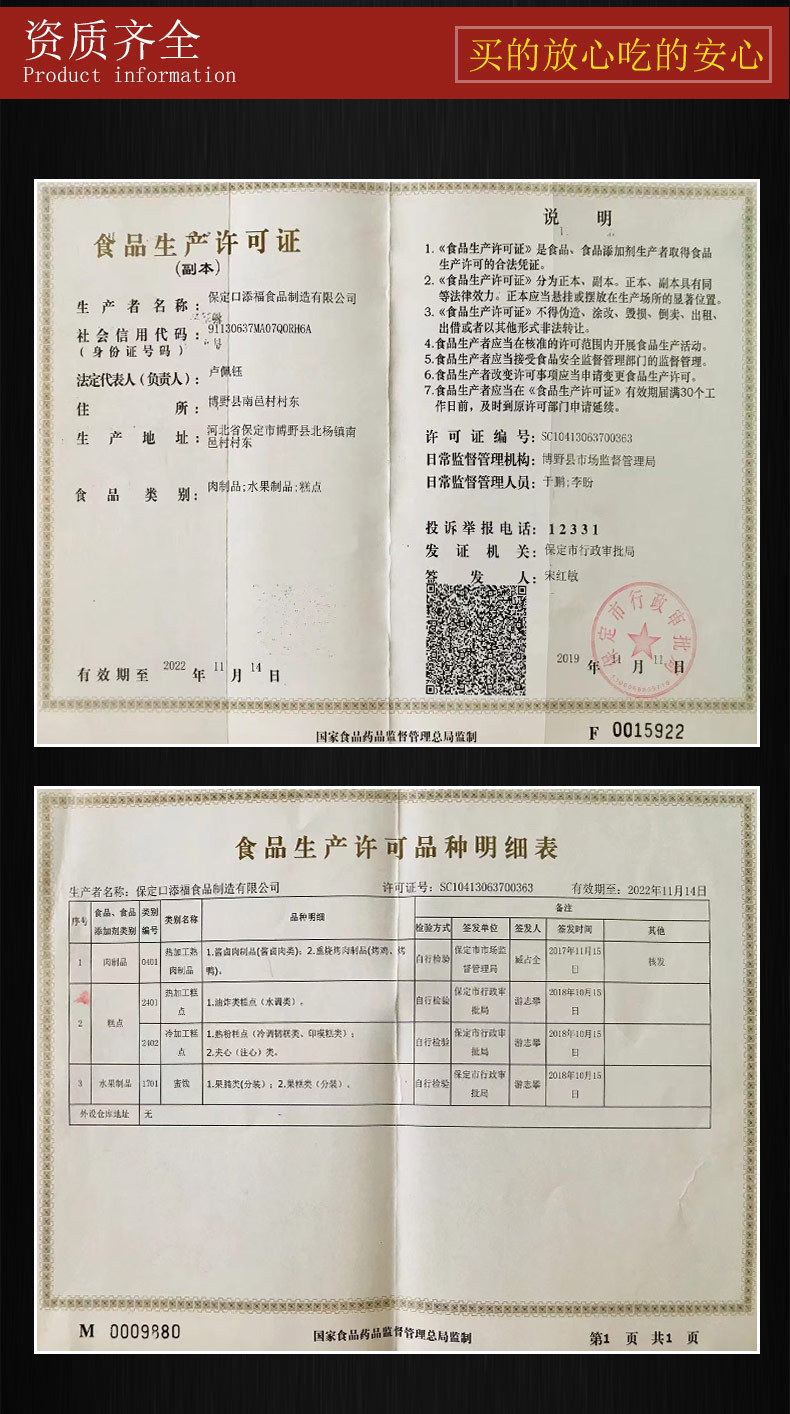 资质齐全
Product information
买的放心吃的安心
食品生产许可证
(副本)
生产者名称：保定口添福食品制造有限公司
社会信用代码：91130637MA07Q0RH6A
(身份证号码)
法定代表人(负责人)：卢佩钰
住所：博野县南邑村村东
生产地址：河北省保定市博野县北杨镇南
邑村村东
食品类别：肉制品;水果制品;糕点
有效期至 2022 年 11 月 14 日
说明
1.《食品生产许可证》是食品、食品添加剂生产者取得食品
生产许可的合法凭证。
2.《食品生产许可证》分为正本、副本。正本、副本具有同
等法律效力。正本应当悬挂或摆放在生产场所的显著位置。
3.《食品生产许可证》不得伪造、涂改、毁损、倒卖、出租、
出借或者以其他形式非法转让。
4.食品生产者应当在核准的许可范围内开展食品生产活动。
5.食品生产者应当接受食品安全监督管理部门的监督管理。
6.食品生产者改变许可事项应当申请变更食品生产许可。
7.食品生产者应当在《食品生产许可证》有效期届满30个工
作日前，及时到原许可部门申请延续。
许可证编号：SC10413063700363
日常监督管理机构：博野县市场监督管理局
日常监督管理人员：于鹏;李盼
投诉举报电话：12331
发证机关：保定市行政审批局
签发人：宋红敏
保定市行政审批局
2019 年 11 月 11 日
国家食品药品监督管理总局监制
F 0015922
食品生产许可品种明细表
生产者名称：保定口添福食品制造有限公司 许可证号：SC10413063700363 有效期至：2022年11月14日
序号 食品、食品添加剂类别 类别编号 类别名称 品种明细 备注
检验方式 签发单位 签发人 签发时间 其他
1 肉制品 0401 热加工熟肉制品 1.酱卤肉制品(酱卤肉类)；2.熏烧烤肉制品(烤鸡、烤鸭)。 自行检验 保定市市场监督管理局 臧占全 2017年11月15日 核发
2 糕点 2401 热加工糕点 1.油炸类糕点（水调类）。 自行检验 保定市行政审批局 游志攀 2018年10月15日
2402 冷加工糕点 1.熟粉糕点（冷调韧糕类、印模糕类）；2.夹心（注心）类。 自行检验 保定市行政审批局 游志攀 2018年10月15日
3 水果制品 1701 蜜饯 1.果脯类(分装)；2.果糕类（分装）。 自行检验 保定市行政审批局 游志攀 2018年10月15日
外设仓库地址 无
M 0009880
国家食品药品监督管理总局监制
第1 页 共1 页